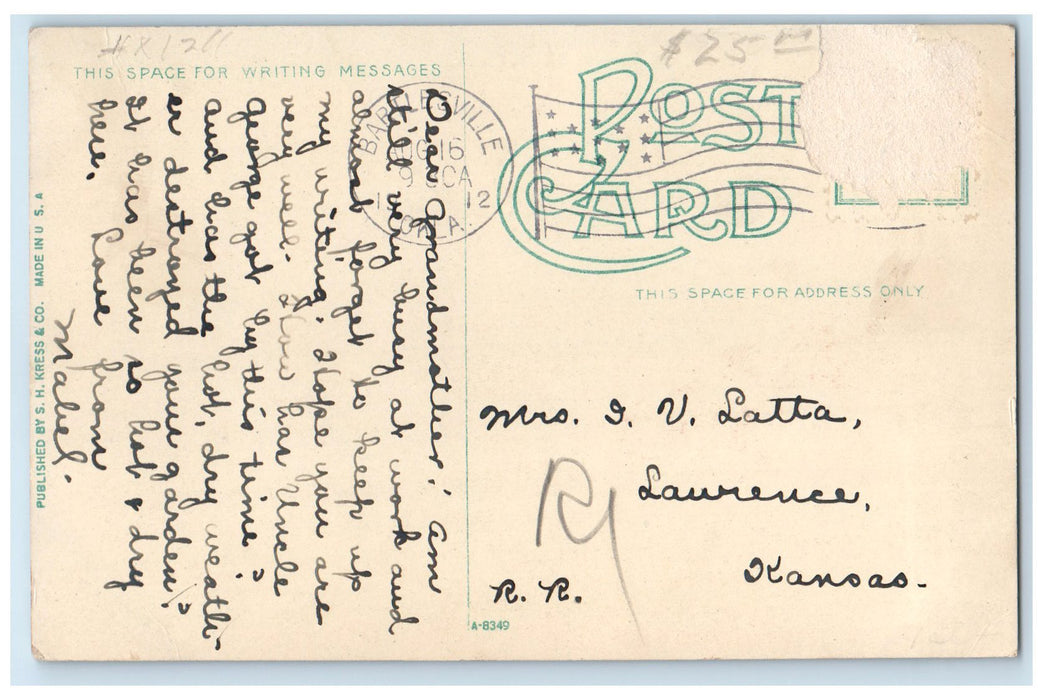 THIS SPACE FOR WRITING MESSAGES
Dear Grandmother: Am
still very busy at work and
almost forget to keep up
my writing. Hope you are
very well. How has Uncle
George got by this time?
and has the hot, dry weath-
er destroyed your garden?
It has been so hot & dry
here. Love from
Mabel.
PUBLISHED BY S. H. KRESS & CO. MADE IN U. S. A
$25
BARTLESVILLE
AUG 16
12
POST
CARD
THIS SPACE FOR ADDRESS ONLY
Mrs. I. V. Latta,
Lawrence,
Kansas.
R. R.
A-8349